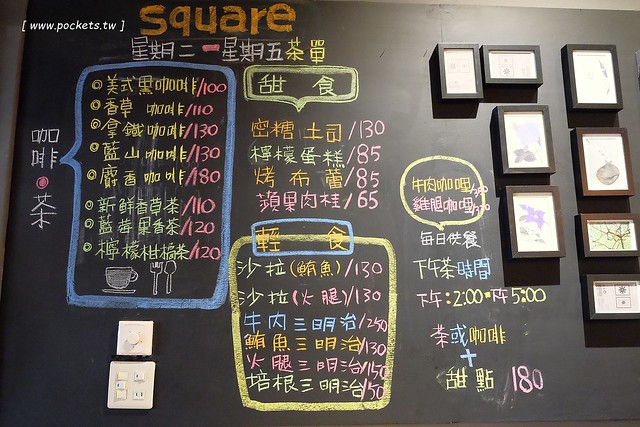 [ www.pockets.tw ]
square
星期二—星期五茶單
咖啡•茶
美式黑咖啡/100
香草咖啡/110
拿鐵咖啡/130
藍山咖啡/130
麝香咖啡/180
新鮮香草茶/110
藍莓果香茶/120
檸檬柑橘茶/120
甜食
密糖土司/130
檸檬蛋糕/85
烤布蕾/85
蘋果肉桂/65
輕食
沙拉(鮪魚)/130
沙拉(火腿)/130
牛肉三明治/250
鮪魚三明治/130
火腿三明治/150
培根三明治/150
牛肉咖哩/350
雞腿咖哩
每日供餐
下午茶時間
下午:2:00-下午5:00
茶或咖啡
+
甜點 180